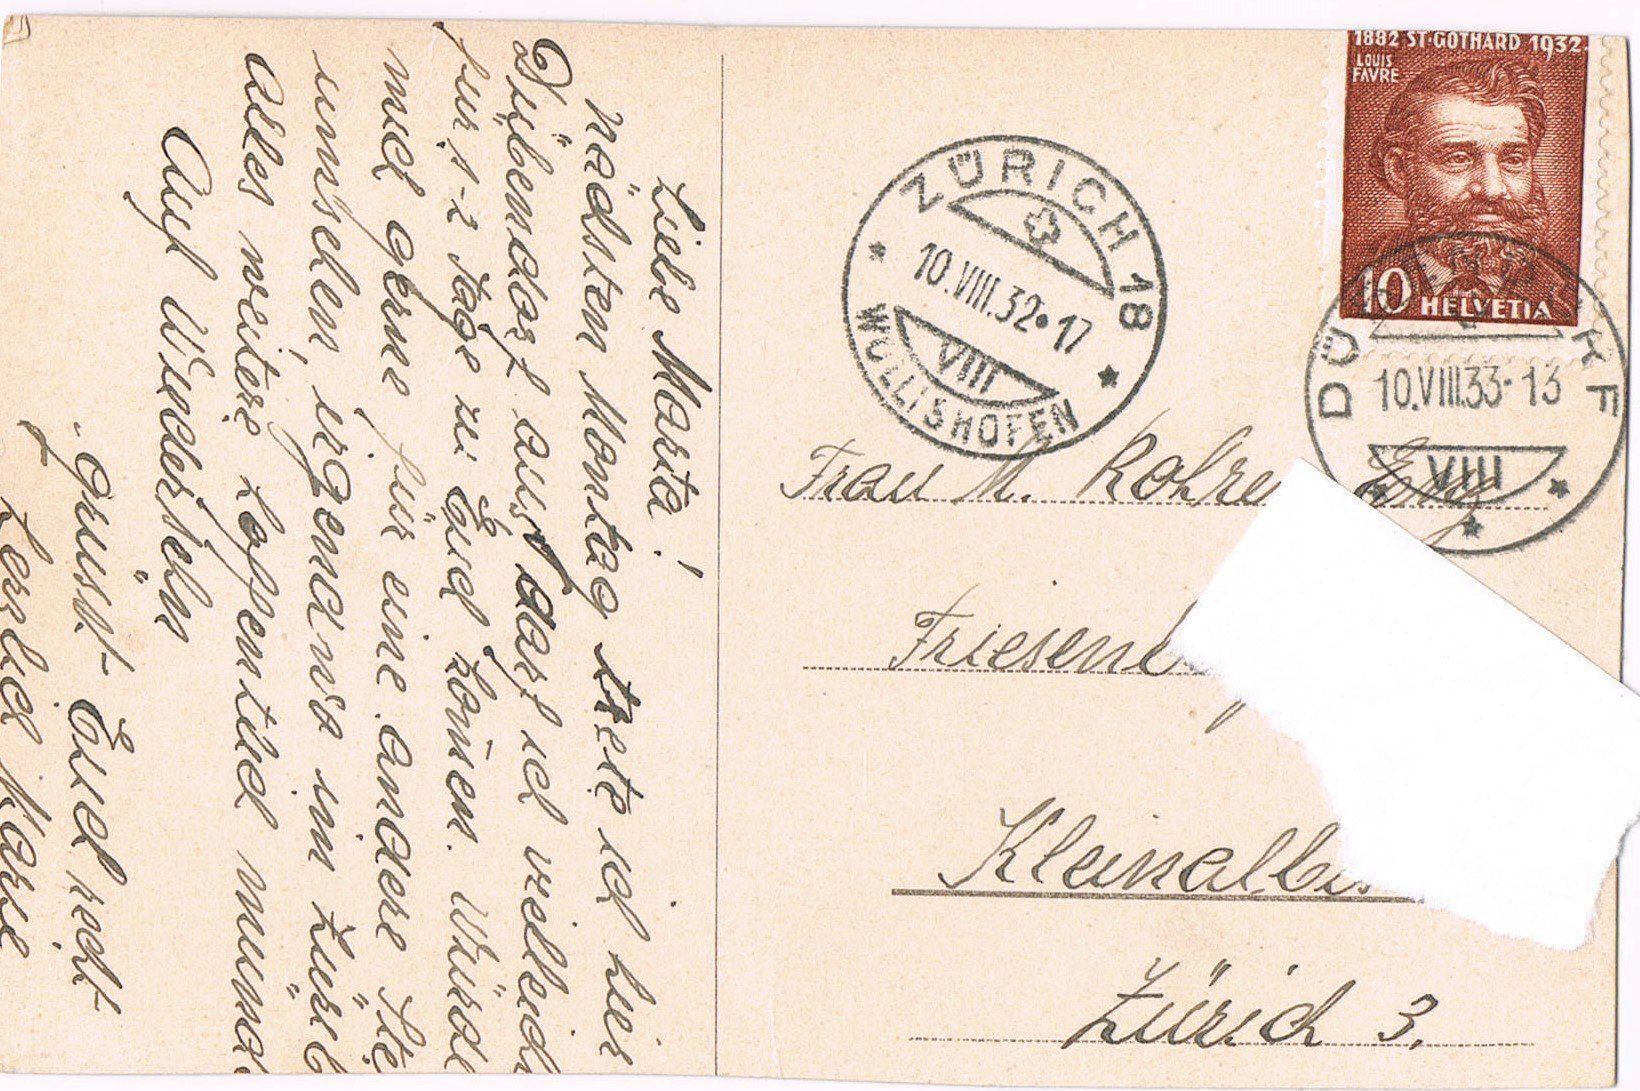 Liebe Marta!
Nächsten Montag trete ich hier
Dübendorf aus, darf ich vielleich
für 1-2 Tage zu Euch komen. Würde
mich gerne für eine andere Ste
umsehen, irgendwo in Züreb
Alles weitere hoffentlich münd
Auf Wiedersehn
grüsst Euch recht
herzlich Marie
1882 ST. GOTHARD 1932
LOUIS
FAVRE
10 HELVETIA
ZÜRICH 18
10.VIII.32•17
VIII
WOLLISHOFEN
10.VIII.33-13
VIII
Frau M. Rohre
Friesen
Kleinalbi
Zürich 3.